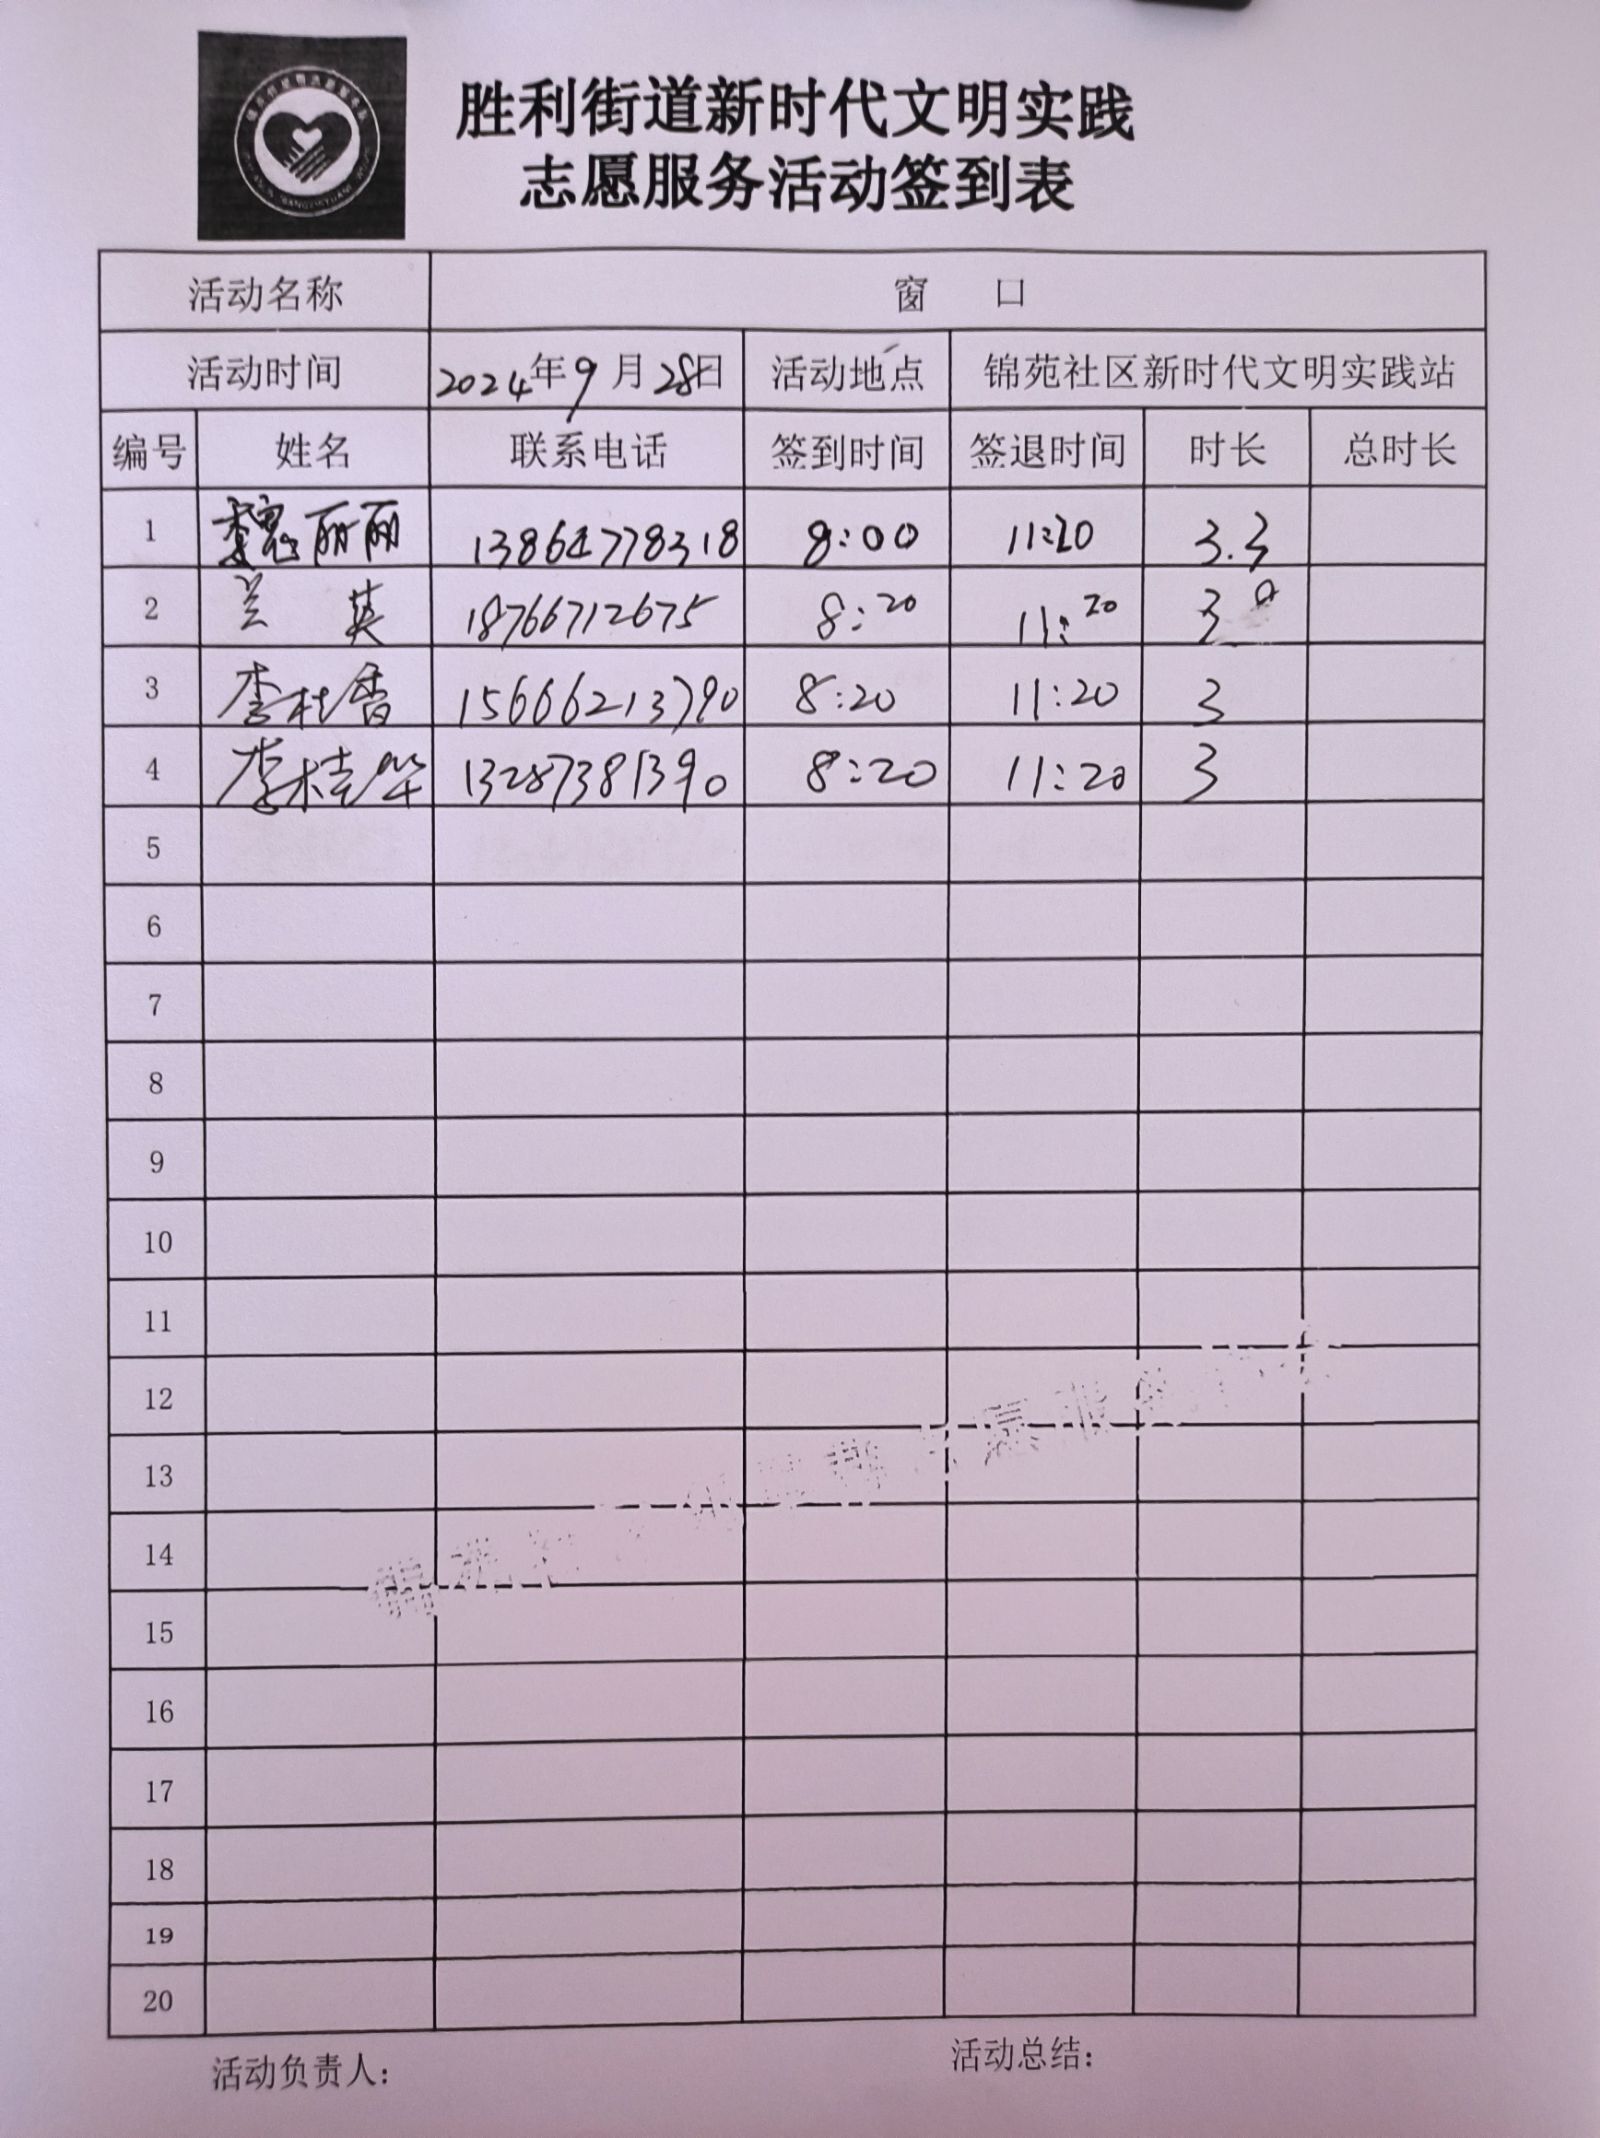 胜利街道新时代文明实践
志愿服务活动签到表
活动名称 窗 口
活动时间 2024年9月28日 活动地点 锦苑社区新时代文明实践站
编号 姓名 联系电话 签到时间 签退时间 时长 总时长
1 魏丽丽 13864778318 8:00 11:20 3.3
2 兰英 18766712675 8:20 11:20 3
3 李桂香 15666213790 8:20 11:20 3
4 李桂华 13287381390 8:20 11:20 3
5
6
7
8
9
10
11
12
13
14
15
16
17
18
19
20
活动负责人: 活动总结: